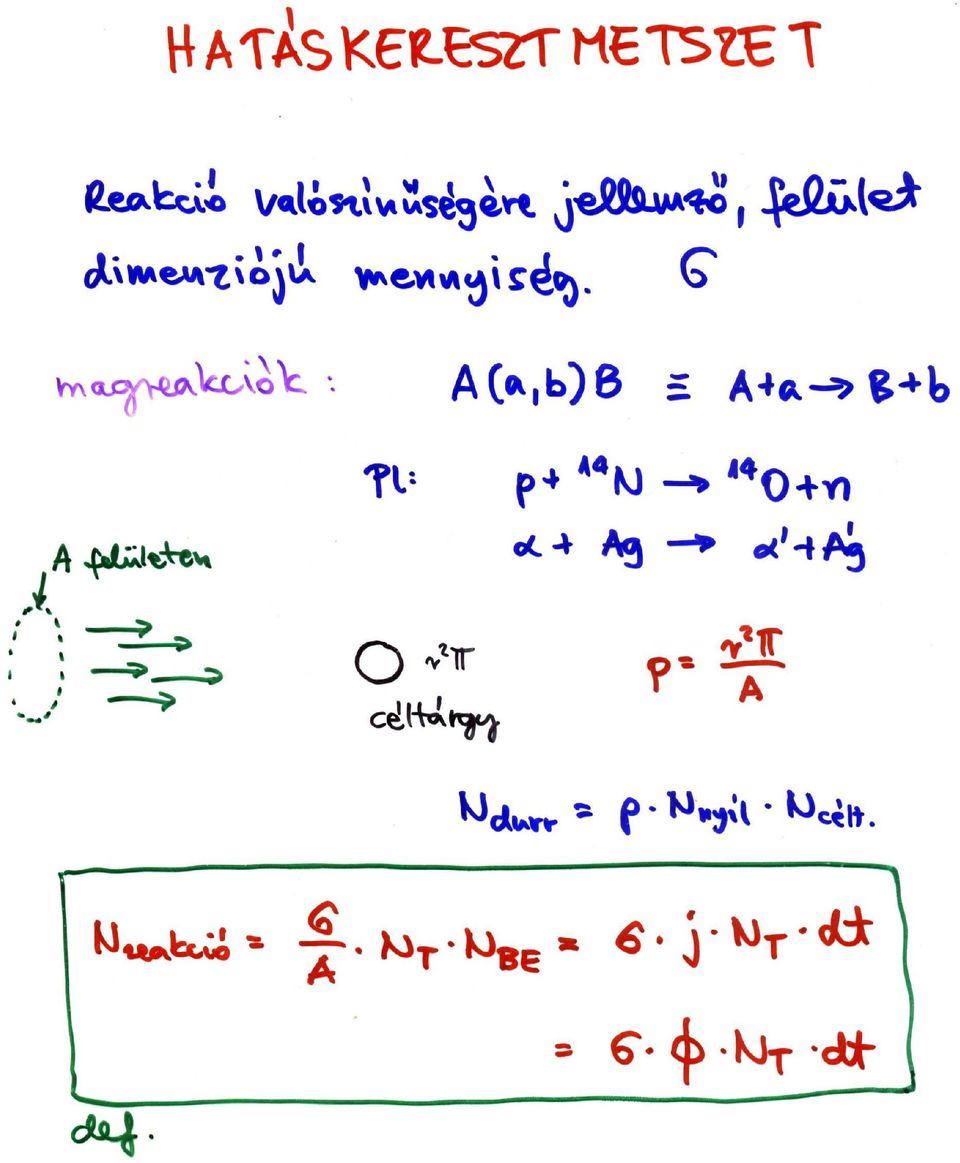 HATÁSKERESZTMETSZET
Reakció valószínűségére jellemző, felület
dimenziójú mennyiség. σ
magreakciók: A(a,b)B ≡ A+a → B+b
Pl: p + ¹⁴N → ¹⁴O + n
α + Ag → α' + Ag'
A felületen
r²π
p = r²π / A
céltárgy
Ndurr = p · Nnyíl · Ncélt.
Nreakció = σ/A · N_T · N_BE = σ · j · N_T · dt
= σ · ϕ · N_T · dt
def.